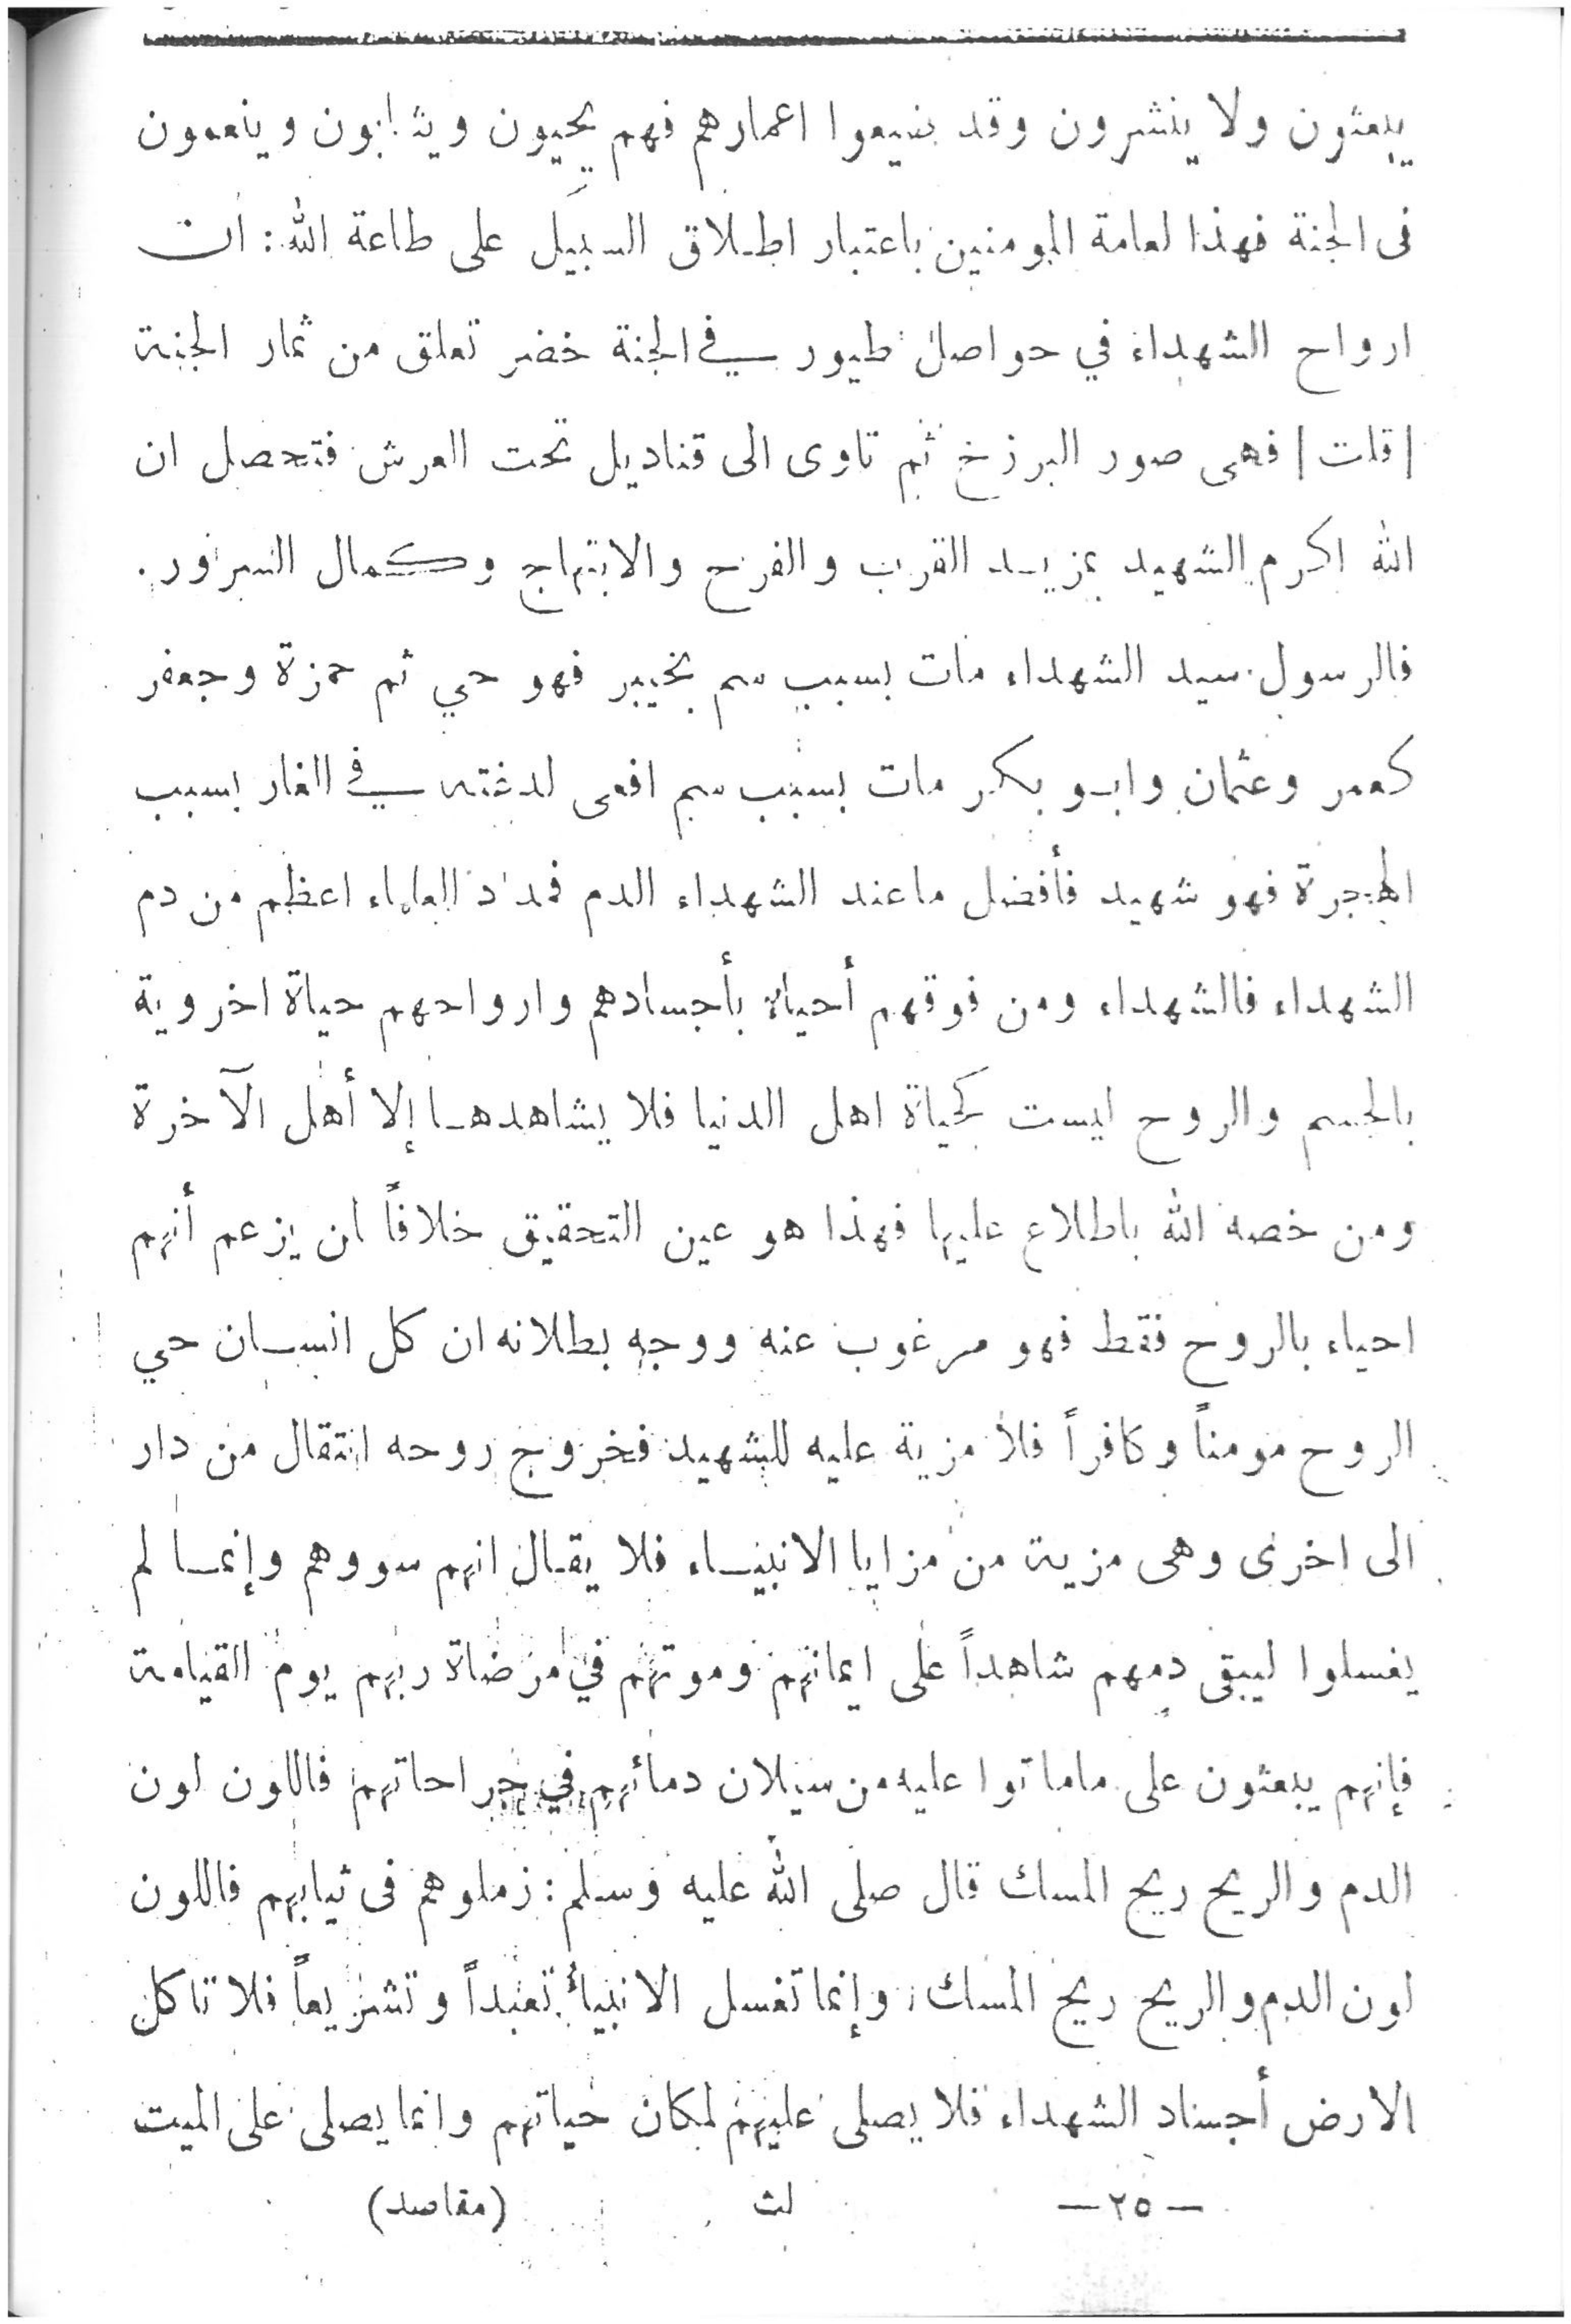 يبعثون ولا ينشرون وقد ضيعوا اعمارهم فهم يحيون ويثابون وينعمون
فى الجنة فهذا لعامة المومنين باعتبار اطلاق السبيل على طاعة الله: ان
ارواح الشهداء في حواصل طيور في الجنة خضر تعلق من ثمار الجنة
| قلت | فهى صور البرزخ ثم تاوى الى قناديل تحت العرش فتحصل ان
الله اكرم الشهيد بمزيد القرب والفرح والابتهاج وكمال السرور.
فالرسول سيد الشهداء مات بسبب سم بخيبر فهو حي ثم حمزة وجعفر
كعمر وعثمان وابو بكر مات بسبب سم افعى لدغته في الغار بسبب
الهجرة فهو شهيد فأفضل ماعند الشهداء الدم فمداد العلماء اعظم من دم
الشهداء فالشهداء ومن فوقهم أحياء بأجسادهم وارواحهم حياة اخروية
بالجسم والروح ليست كحياة اهل الدنيا فلا يشاهدها إلا أهل الآخرة
ومن خصه الله باطلاع عليها فهذا هو عين التحقيق خلافاً لمن يزعم أنهم
احياء بالروح فقط فهو مرغوب عنه ووجه بطلانه ان كل انسان حي
الروح مومناً وكافراً فلا مزية عليه للشهيد فخروج روحه انتقال من دار
الى اخرى وهى مزية من مزايا الانبياء فلا يقال انهم سووهم وإنما لم
يغسلوا ليبقى دمهم شاهداً على ايمانهم وموتهم في مرضاة ربهم يوم القيامة
فإنهم يبعثون على ماماتوا عليه من سيلان دمائهم في جراحاتهم فاللون لون
الدم والريح ريح المسك قال صلى الله عليه وسلم: زملوهم فى ثيابهم فاللون
لون الدم والريح ريح المسك، وإنما تغسل الانبياء تعبداً وتشريعاً فلا تاكل
الارض أجساد الشهداء فلا يصلى عليهم لمكان حياتهم وانما يصلى على الميت
— ٢٥ — لث (مقاصد)